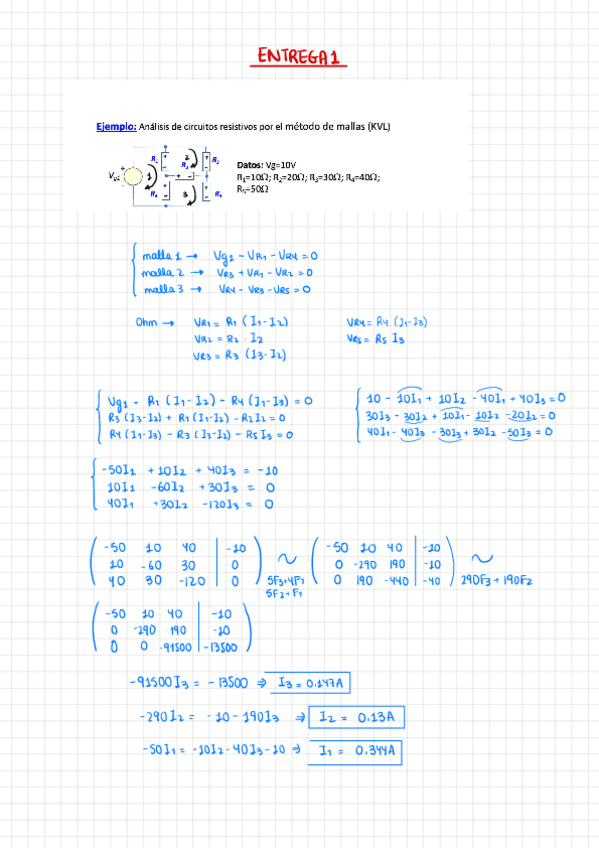 ENTREGA 1
Ejemplo: Análisis de circuitos resistivos por el método de mallas (KVL)
Datos: Vg=10V
R₁=10Ω; R₂=20Ω; R₃=30Ω; R₄=40Ω;
R₅=50Ω
malla 1 → Vg1 - VR1 - VR4 = 0
malla 2 → VR3 + VR1 - VR2 = 0
malla 3 → VR4 - VR3 - VR5 = 0
Ohm → VR1 = R1 (I1-I2) VR4 = R4 (I1-I3)
VR2 = R2 · I2 VR5 = R5 I3
VR3 = R3 (I3-I2)
Vg1 - R1 (I1-I2) - R4 (I1-I3) = 0
R3 (I3-I2) + R1 (I1-I2) - R2I2 = 0
R4 (I1-I3) - R3 (I3-I2) - R5I3 = 0
10 - 10I1 + 10I2 - 40I1 + 40I3 = 0
30I3 - 30I2 + 10I1 - 10I2 - 20I2 = 0
40I1 - 40I3 - 30I3 + 30I2 - 50I3 = 0
-50I1 + 10I2 + 40I3 = -10
10I1 -60I2 +30I3 = 0
40I1 +30I2 -120I3 = 0
-50 10 40 | -10
10 -60 30 | 0
40 30 -120 | 0
~
5F3+4F1
5F2+F1
-50 10 40 | -10
0 -290 190 | -10
0 190 -440 | -40
~
290F3 + 190F2
-50 10 40 | -10
0 -290 190 | -10
0 0 -91500 | -13500
-91500I3 = -13500 ⇒ I3 = 0.147A
-290I2 = -10-190I3 ⇒ I2 = 0.13A
-50I1 = -10I2-40I3-10 ⇒ I1 = 0.344A